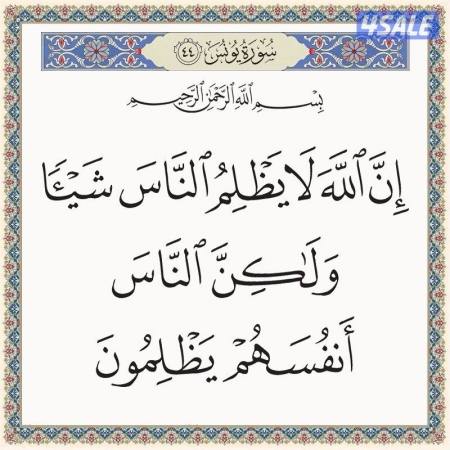 4SALE
سُورَةُ يُونُسَ ٤٤
بِسْمِ ٱللَّهِ ٱلرَّحْمَٰنِ ٱلرَّحِيمِ
إِنَّ ٱللَّهَ لَا يَظْلِمُ ٱلنَّاسَ شَيْـًٔا
وَلَٰكِنَّ ٱلنَّاسَ
أَنفُسَهُمْ يَظْلِمُونَ